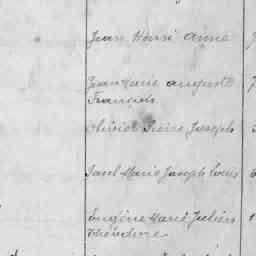 Jean Henri Anne
Jean Marie Auguste
François
Olivier Pierre Joseph
Marie Joseph Louis
Eugène Marie Julien
Théodore